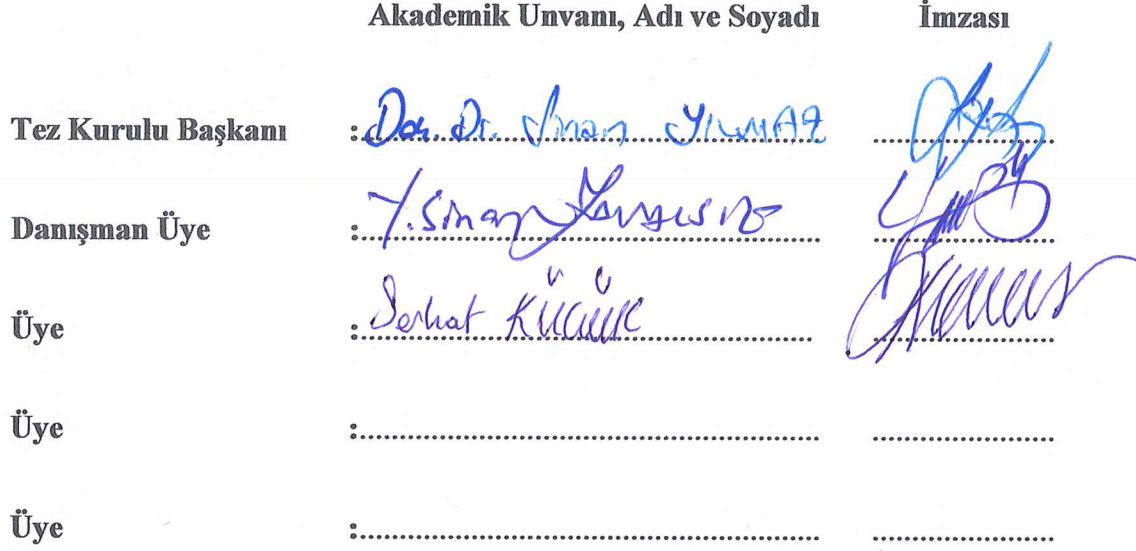 Akademik Unvanı, Adı ve Soyadı İmzası
Tez Kurulu Başkanı : Doç. Dr. Sinan YILMAZ
Danışman Üye : Y. Sinan
Üye : Serhat KÜÇÜK
Üye :
Üye :